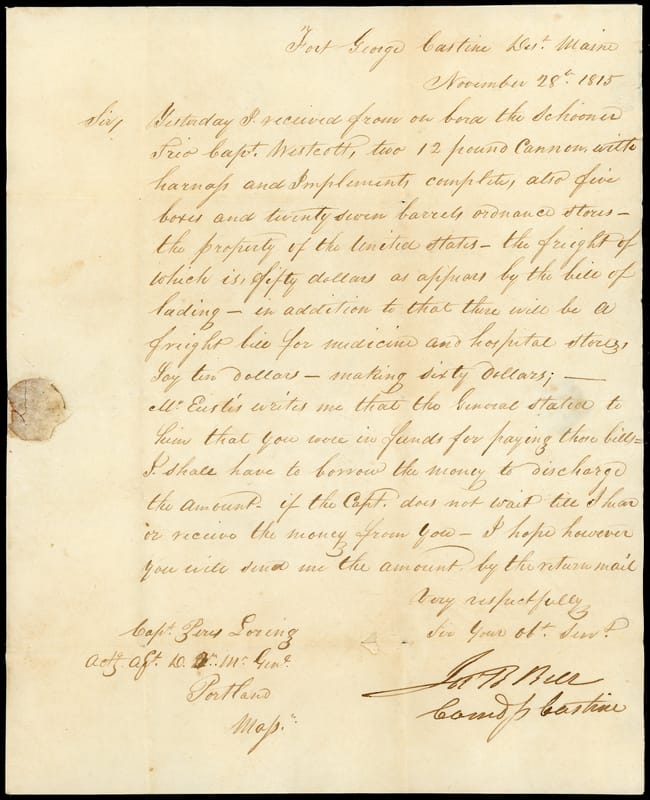 Fort George Castine Dist. Maine
November 28th. 1815
Sir, Yesterday I received from on bord the Schooner
Trio Capt. Westcott, two 12 pound Cannon, with
harnass and Implements complete, also five
boxes and twenty seven barrels ordnance stores –
the property of the United States – the freight of
which is, fifty dollars as appears by the bill of
lading – in addition to that there will be a
freight bill for medicine and hospital stores,
Say ten dollars – making sixty dollars; —
Mr. Eustis writes me that the General stated to
him that you were in funds for paying those bills =
I shall have to borrow the money to discharge
the amount – if the Capt. does not wait till I hear
or receive the money from you – I hope however
you will send me the amount by the return mail
Very respectfully
Sir Your Obt. Servt.
Capt. Perez Loring
Actg. Asst. D. Qr. Mr. Genl.
Portland
Mass.
Jno B Bell
Comdg Castine